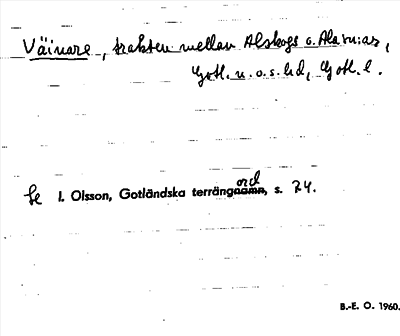 Väinare, trakten mellan Alskogs o. Ala m:ar,
Gotl. u. o. s. hd, Gotl. l.
Se I. Olsson, Gotländska terrängord, s. 24.
B.-E. O. 1960.